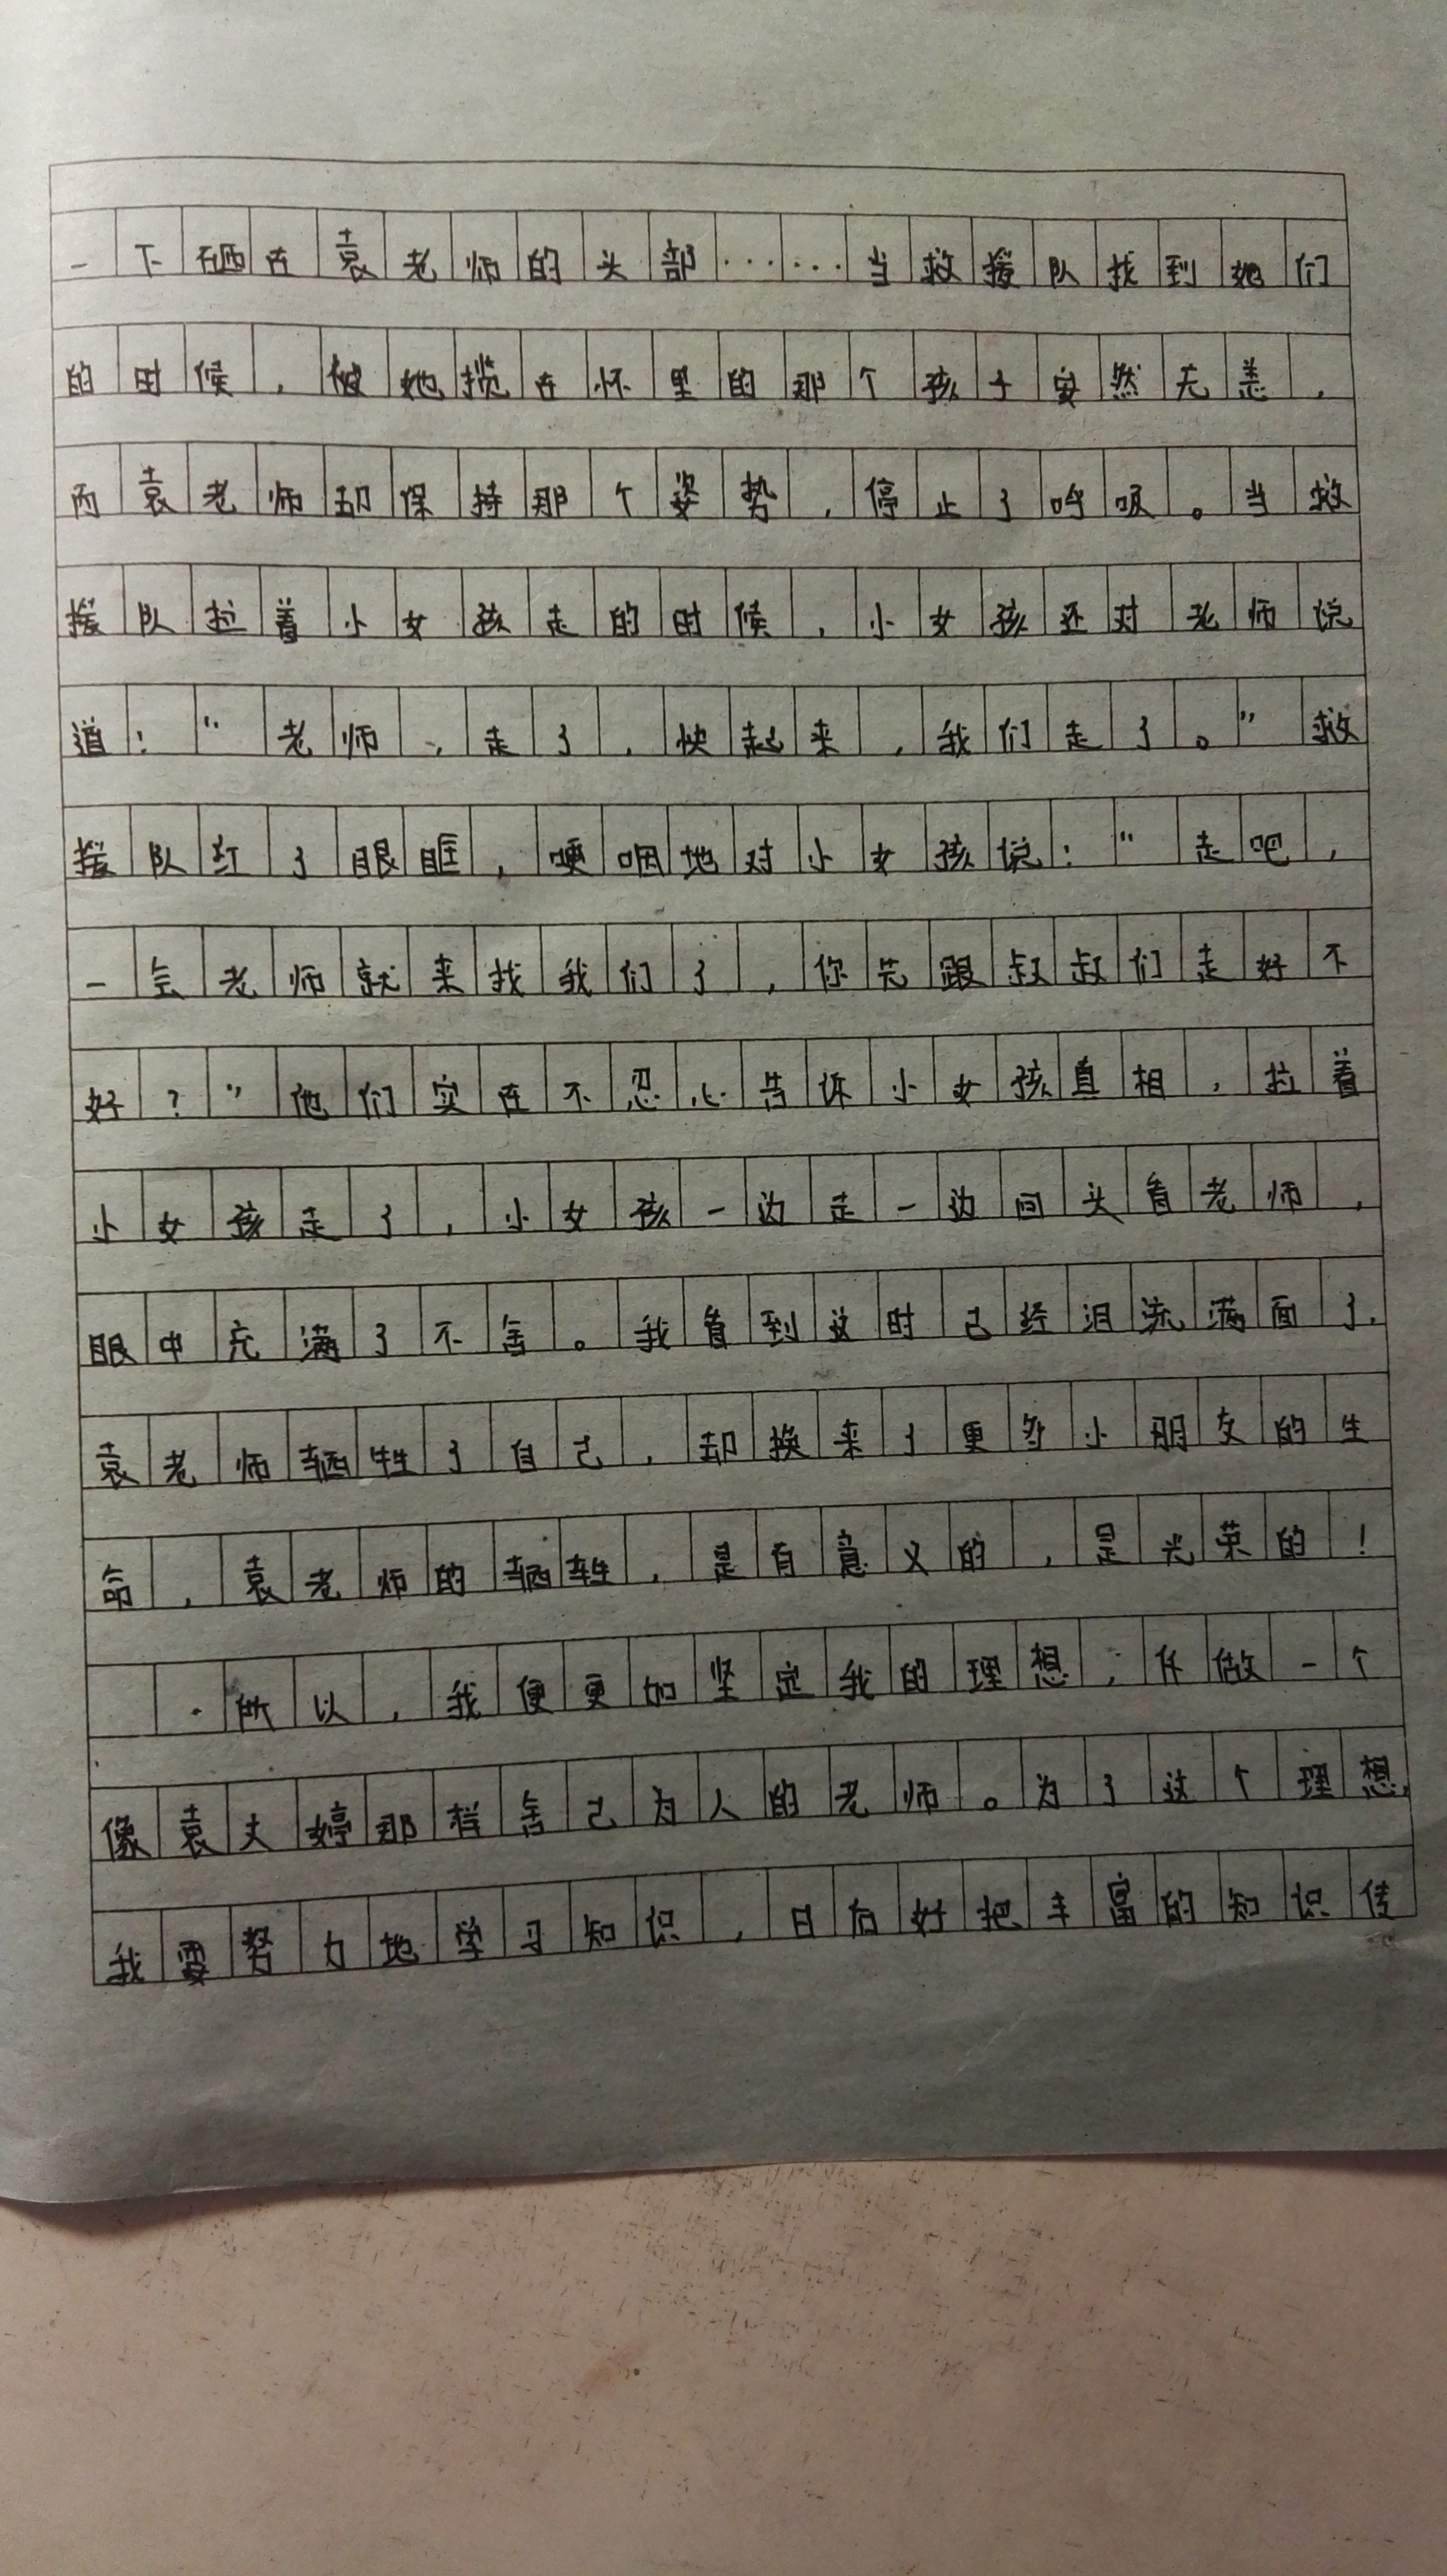 一下砸在袁老师的头部……当救援队找到她们
的时候，被她揽在怀里的那个孩子安然无恙，
而袁老师却保持那个姿势，停止了呼吸。当救
援队拉着小女孩走的时候，小女孩还对老师说
道：“老师、走了，快起来，我们走了。”救
援队红了眼眶，哽咽地对小女孩说：“走吧，
一会老师就来找我们了，你先跟叔叔们走好不
好？”他们实在不忍心告诉小女孩真相，拉着
小女孩走了，小女孩一边走一边回头看老师，
眼中充满了不舍。我看到这时已经泪流满面了.
袁老师牺牲了自己，却换来了更多小朋友的生
命，袁老师的牺牲，是有意义的，是光荣的！
所以，我便更加坚定我的理想；作做一个
像袁文婷那样舍己为人的老师。为了这个理想，
我要努力地学习知识，日后好把丰富的知识传